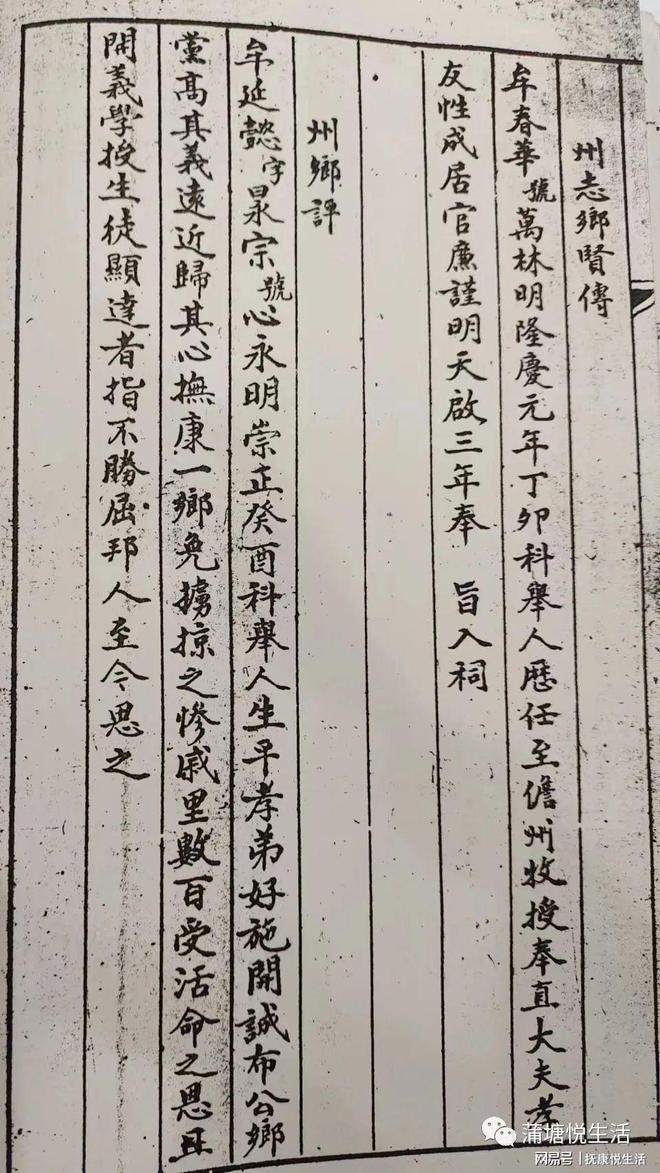 州志鄉賢傳
牟春華號萬林明隆慶元年丁卯科舉人歷任至儋州牧授奉直大夫孝
友性成居官廉謹明天啟三年奉 旨入祠
州鄉評
牟延懿字晸宗號心永明崇正癸酉科舉人生平孝弟好施開誠布公鄉
黨高其義遠近歸其心撫康一鄉免擄掠之慘戚里數百受活命之恩且
開義學授生徒顯達者指不勝屈邦人至今思之
蒲塘悦生活
网易号 | 抚康悦生活